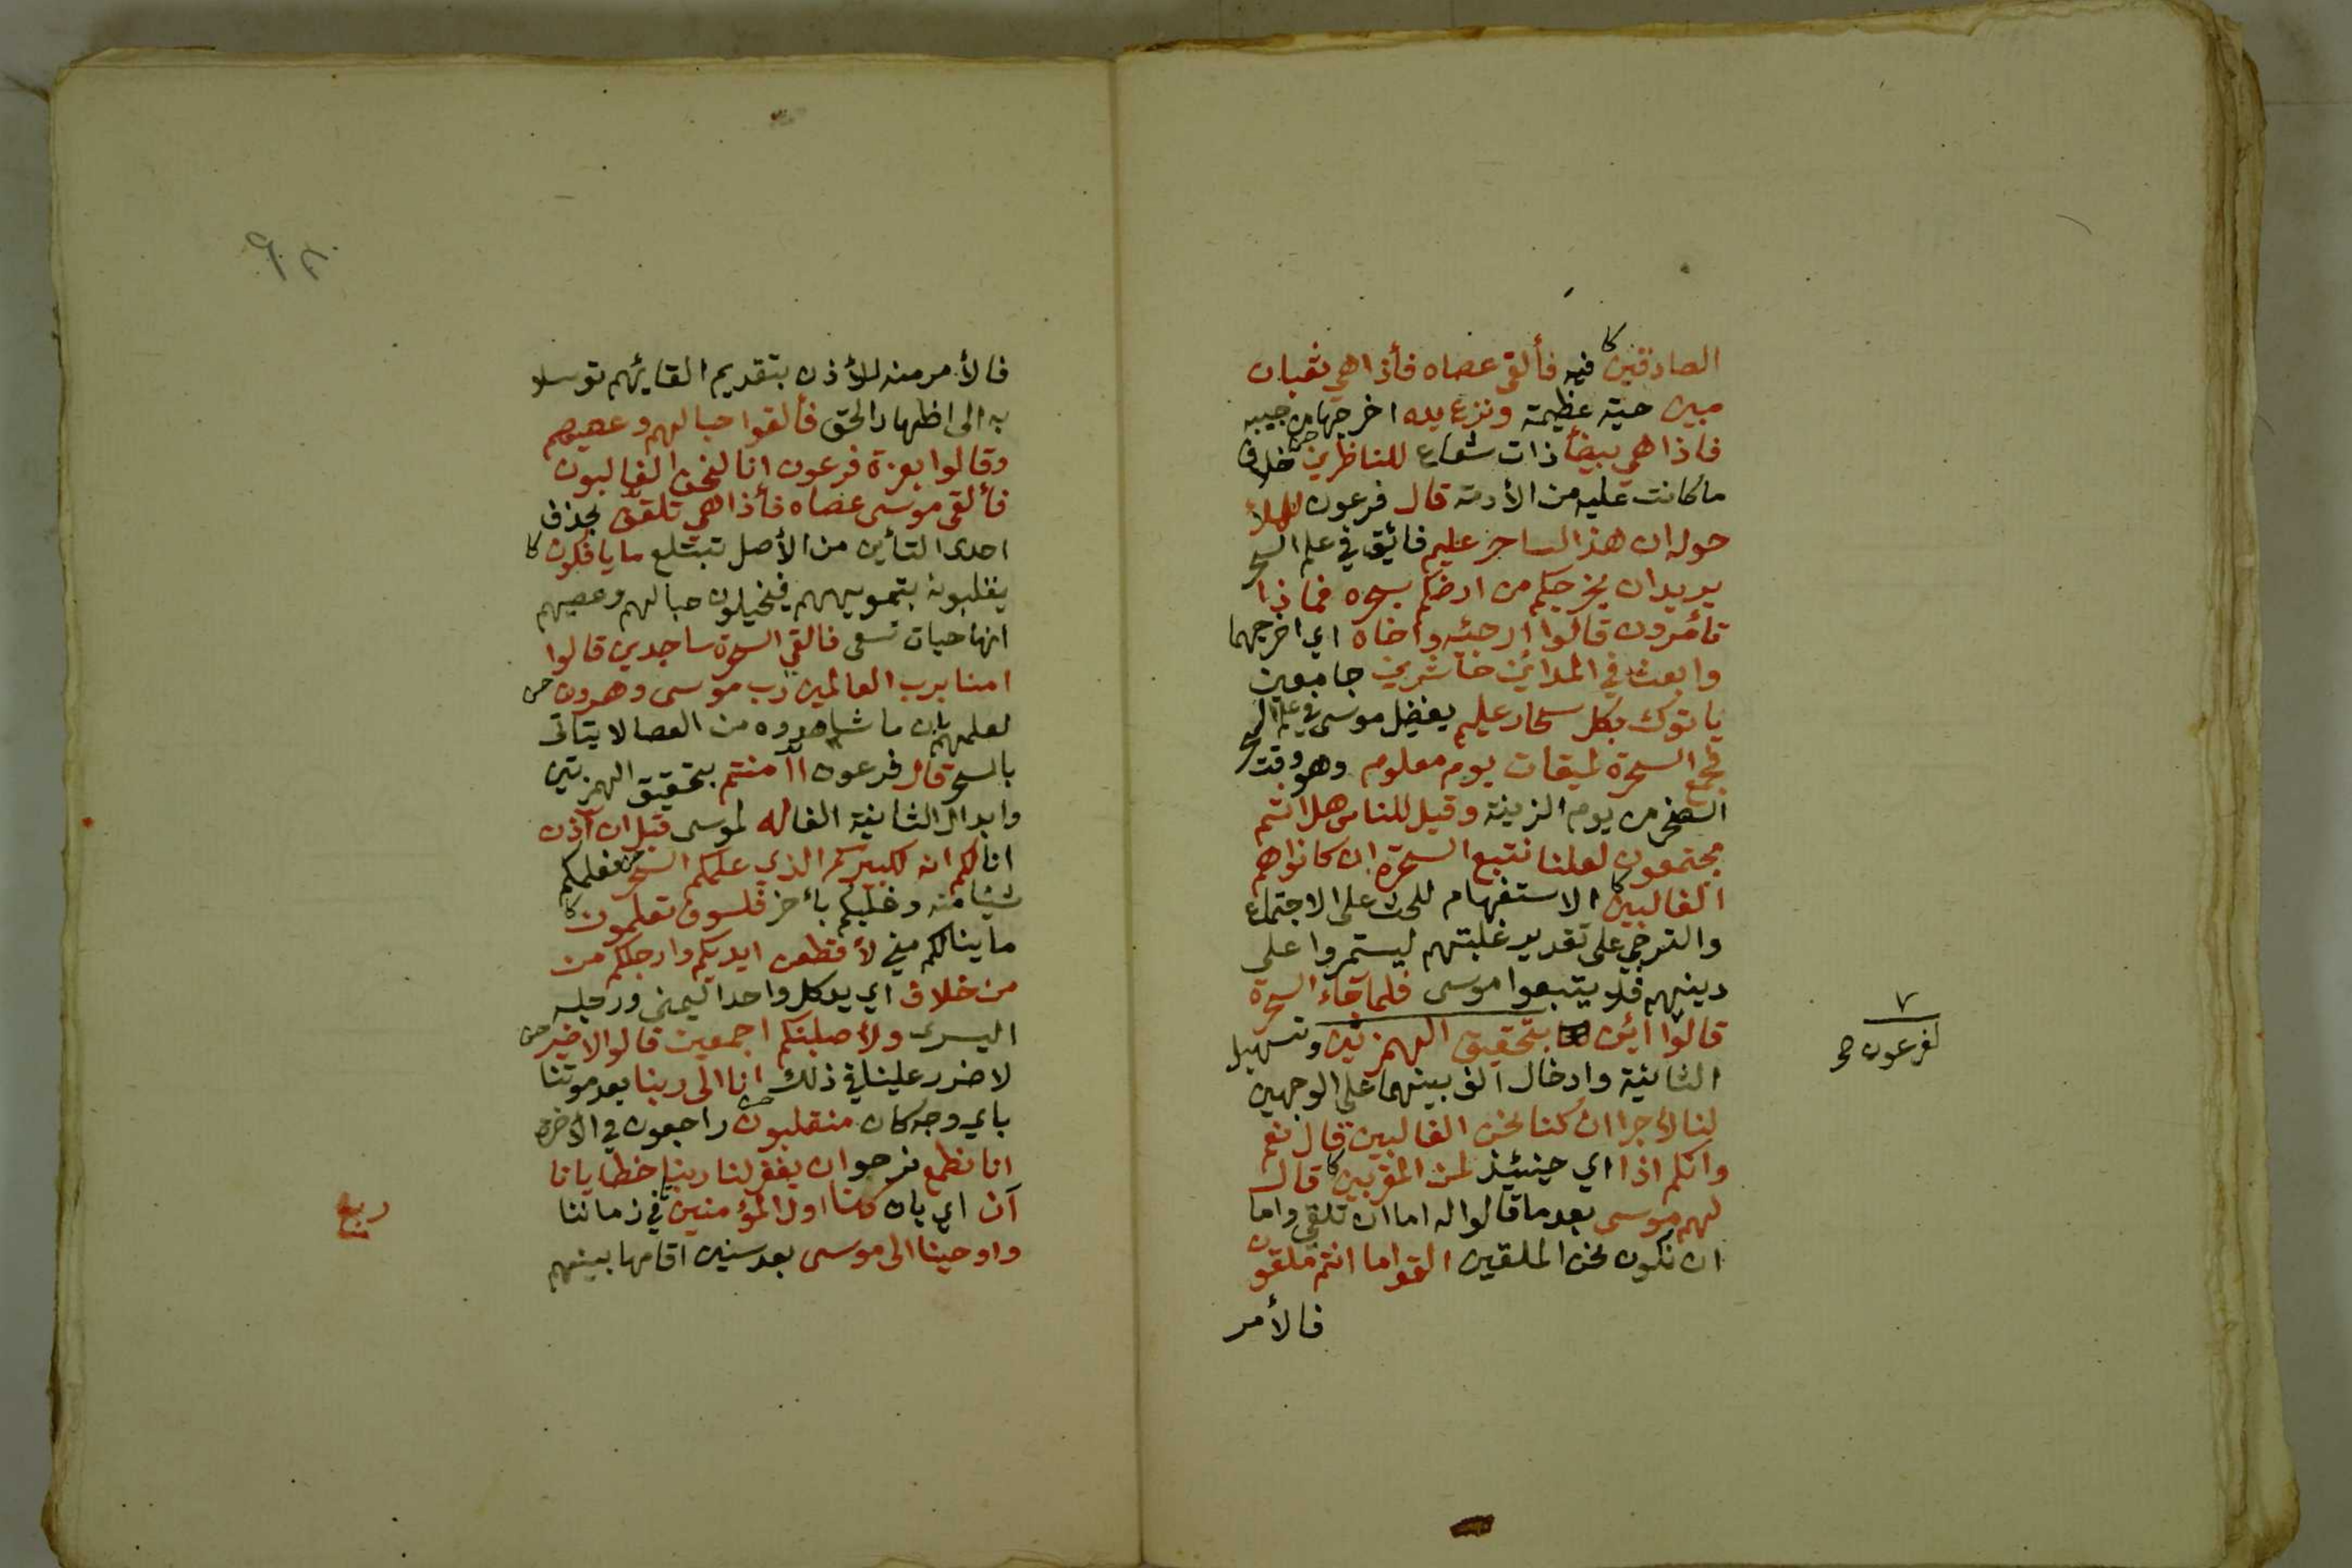 الصادقين كا فيه فألقى عصاه فأذا هي ثعبان
مبين حية عظيمة ونزع يده اخرجها من جيبه
فاذا هي بيضأ ذات شعاع للناظرين خلاف
ما كانت عليه من الأدمة قال فرعون للملأ
حوله ان هذا لساحر عليم فائق في علم السحر
يريد ان يخرجكم من ارضكم بسحره فماذا
تأمرون قالوا ارجئه واخاه اي اخرجهما
وابعث في المدائن حاشرين جامعين
ياتوك بكل سحار عليم يفضل موسى في علم السحر
فجمع السحرة لميقات يوم معلوم وهو وقت
الضحى من يوم الزينة وقيل للناس هل انتم
مجتمعون لعلنا نتبع السحرة ان كانوا هم
الغالبين كا الاستفهام للحث على الاجتماع
والترجي على تقدير غلبتهم ليستمروا على
دينهم فلا يتبعوا موسى فلما جاء السحرة
قالوا أئن بتحقيق الهمزتين وتسهيل
الثانية وادخال الف بينهما على الوجهين
لنا لأجرا ان كنا نحن الغالبين قال نعم
وانكم اذا اي حينئيذ لمن المقربين كا قال
لهم موسى بعد ما قالوا له اما ان تلقي واما
ان نكون نحن الملقين القوا ما انتم ملقون
فالأمر
٧
لفرعون صح
فالأمر منه للأذن بتقديم القائهم توسلا
به الى اظهار الحق فألقوا حبالهم وعصيهم
وقالوا بعزة فرعون انا لنحن الغالبون
فألقى موسى عصاه فأذا هي تلقف بحذف
احدى التأين من الأصل تبتلع ما يافكون كا
يقلبونه بتمويههم فيخيلون حبالهم وعصيهم
انها حيات تسعى فالقي السحرة ساجدين قالوا
امنا برب العالمين رب موسى وهرون
لعلمهم بان ما شاهدوه من العصا لا يتاتى
بالسحر قال فرعون أآمنتم بتحقيق الهمزتين
وابدال الثانية الفا له لموسى قبل ان آذن
انا لكم انه لكبيركم الذي علمكم السحر فعلمكم
شيئا منه وغلبكم بأخر فلسوف تعلمون كا
ما ينالكم مني لأقطعن ايديكم وارجلكم من
من خلاف اي يد كل واحد اليمنى ورجله
اليسرى ولأصلبنكم اجمعين قالوا لا ضير
لا ضرر علينا في ذلك انا الى ربنا بعد موتنا
باي وجه كان منقلبون راجعون في الأخرة
انا نطمع نرجوا ان يغفر لنا ربنا خطايانا
أن اي بان كنا اول المؤمنين في زماننا
واوحينا الى موسى بعد سنين اقامها بينهم
ربع